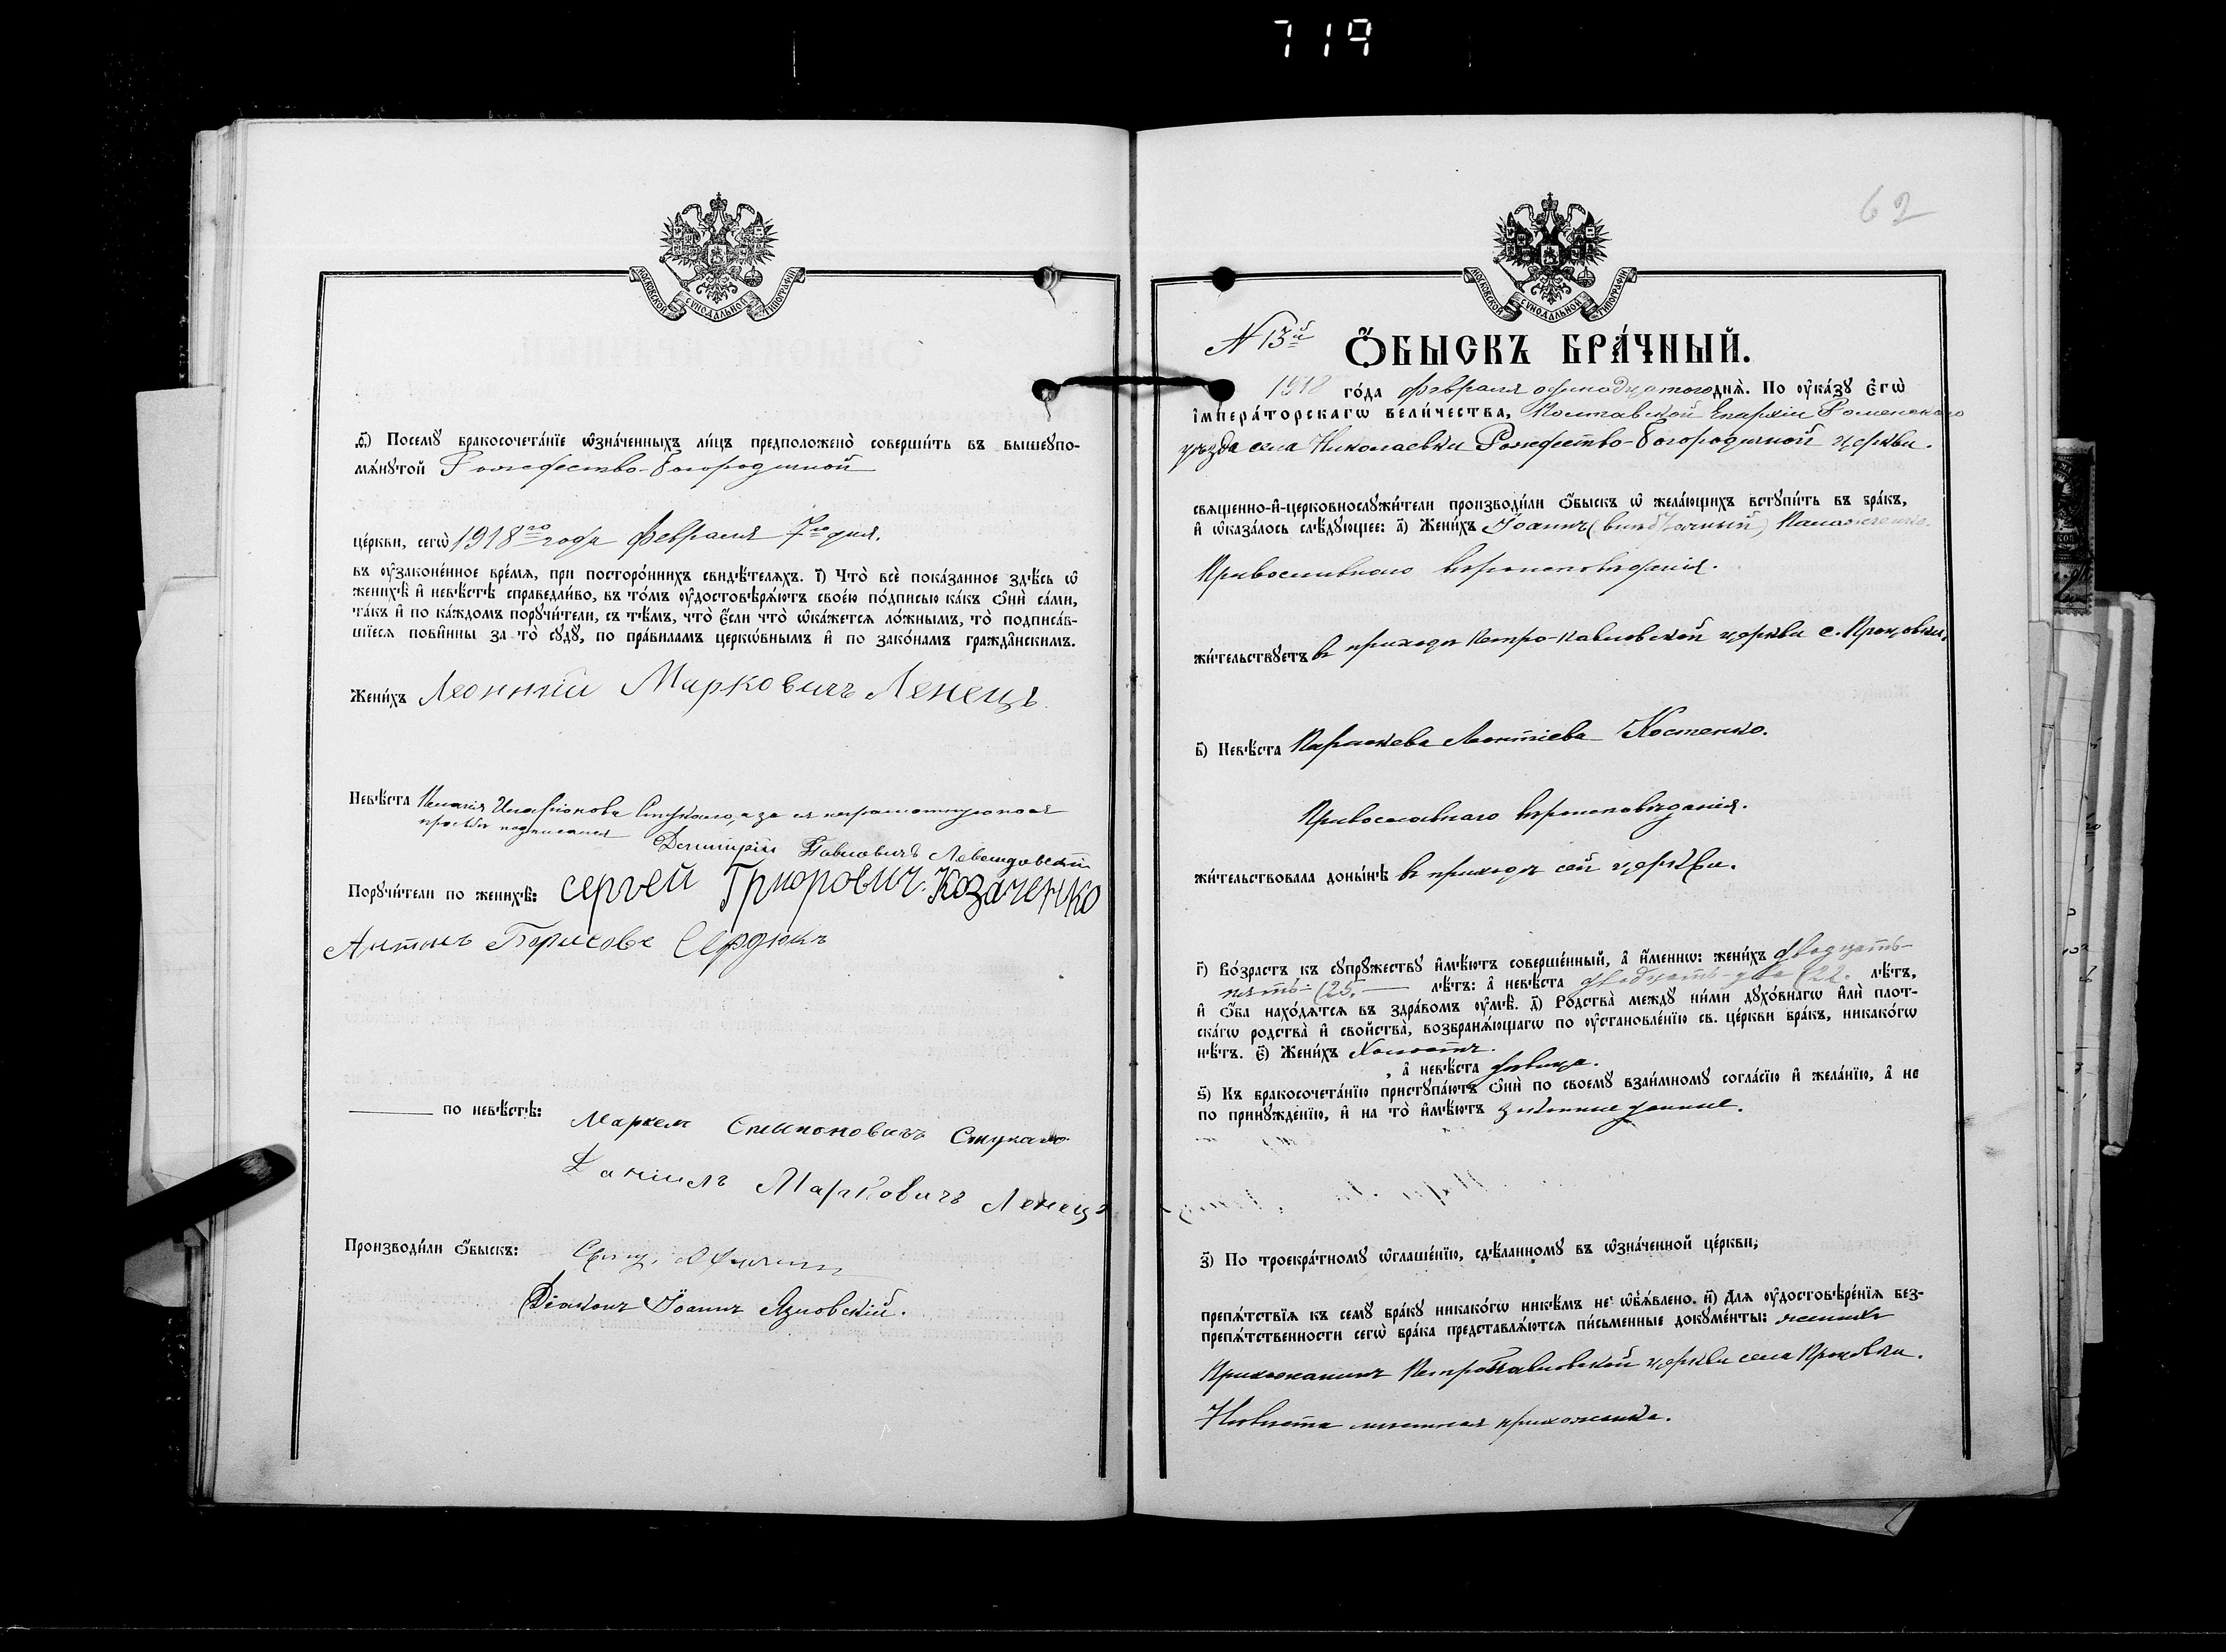 719
МОСКОВСКОЙ СѴНОДАЛЬНОЙ ТИПОГРАФІИ
ѳ҃) Посемꙋ̀ бракосочета́нїе ѡ҆зна́ченныхъ ли́цъ предположено̀ соверши́ть въ вышеꙋпо-
мѧ́нꙋтой Рождество-Богородичной
це́ркви, сегѡ̀ 1918го года Февраля 7го дня.
въ ᲂу҆зако́нєнное вре́мѧ, при посторо́ннихъ свидѣ́телѧхъ. і҃) Что̀ всѐ пока́занное здѣ́сь ѡ҆
женихѣ̀ и҆ невѣ́стѣ справедли́во, въ то́мъ ᲂу҆достовѣрѧ́ютъ свое́ю по́дписью ка́къ ѻ҆нѝ са́ми,
та́къ и҆ по ка́ждомъ порꙋчи́тели, съ тѣ́мъ, что̀ є҆́сли что̀ ѡ҆ка́жется ло́жнымъ, то̀ подписа́в-
шїеся пови́нны за то̀ сꙋдꙋ̀, по пра́виламъ церкѡ́внымъ и҆ по зако́намъ гражда̑нскимъ.
Жени́хъ Леонтій Марковичъ Ленецъ
Невѣ́ста Пелагія Иларіонова Стукало, а за ея неграмотную по ея
просьбѣ подписался Димитрій Павловичъ
Порꙋчи́тели по женихѣ̀: Сергей Григорович Козаченко
Антонъ Борисовъ Сердюкъ
по невѣ́стѣ: Маркел Стукало
Даніилъ Марковичъ Ленецъ
Производи́ли ѻ҆́быскъ: Свящ.
Діаконъ Іоаннъ Язловскій.
62
МОСКОВСКОЙ СѴНОДАЛЬНОЙ ТИПОГРАФІИ
N 13й ѺБЫСКЪ БРА́ЧНЫЙ.
1918 го́да февраля днѧ̀. По ᲂу҆ка́зꙋ Є҆гѡ̀
І҆мпера́торскагѡ вели́чества, Полтавской Епархіи Роменского
уѣзда села Николаевки Рождество-Богородичной церкви.
свѧще́нно-и҆-церковнослꙋжи́тели производи́ли ѻ҆́быскъ ѡ҆ жела́ющихъ встꙋпи́ть въ бра́къ,
и҆ ѡ҆каза́лось слѣ́дꙋющее: а҃) Жени́хъ Іоаннъ
Православнаго вѣроисповѣданія.
жи́тельствꙋетъ въ приходѣ Петро-Павловской церкви с.
в҃) Невѣ́ста Параскева Леонтіева Костенко.
Православнаго вѣроисповѣданія.
жи́тельствовала доны́нѣ въ приходѣ сей церкви.
г҃) Во́зрастъ къ сꙋпрꙋ́жествꙋ и҆мѣ́ютъ совершє́нный, а҆ и҆́меннѡ: жени́хъ двадцать-
пять (25. лѣ́тъ: а҆ невѣ́ста двадцать-два (22. лѣ́тъ,
и҆ ѻ҆́ба нахо́дѧтся въ здра́вомъ ᲂу҆мѣ̀. д҃) Родства̀ между ни́ми дꙋхо́внагѡ и҆лѝ плот-
ска́гѡ родства̀ и҆ свойства̀, возбранѧ́ющагѡ по ᲂу҆становле́нїю св. це́ркви бра́къ, никако́гѡ
нѣ́тъ. є҃) Жени́хъ холостъ.
, а҆ невѣ́ста дѣвица.
ѕ҃) Къ бракосочета́нїю пристꙋпа́ютъ ѻ҆нѝ по своемꙋ̀ взаи́мномꙋ согла́сїю и҆ жела́нїю, а҆ не
по принꙋжде́нїю, и҆ на то̀ и҆мѣ́ютъ
з҃) По троекра́тномꙋ ѡ҆глаше́нїю, сдѣ́ланномꙋ въ ѡ҆зна́ченной це́ркви,
препѧ́тствїѧ къ семꙋ̀ бра́кꙋ никако́гѡ никѣ́мъ не ѡ҆б̾ѧ́влено. и҃) Для ᲂу҆достовѣре́нїѧ без-
препѧ́тственности сегѡ̀ бра́ка представлѧ́ются пи́сьменные докꙋме́нты: женихъ
Прихожанинъ Петропавловской церкви села
Невѣста мѣстная прихожанка.